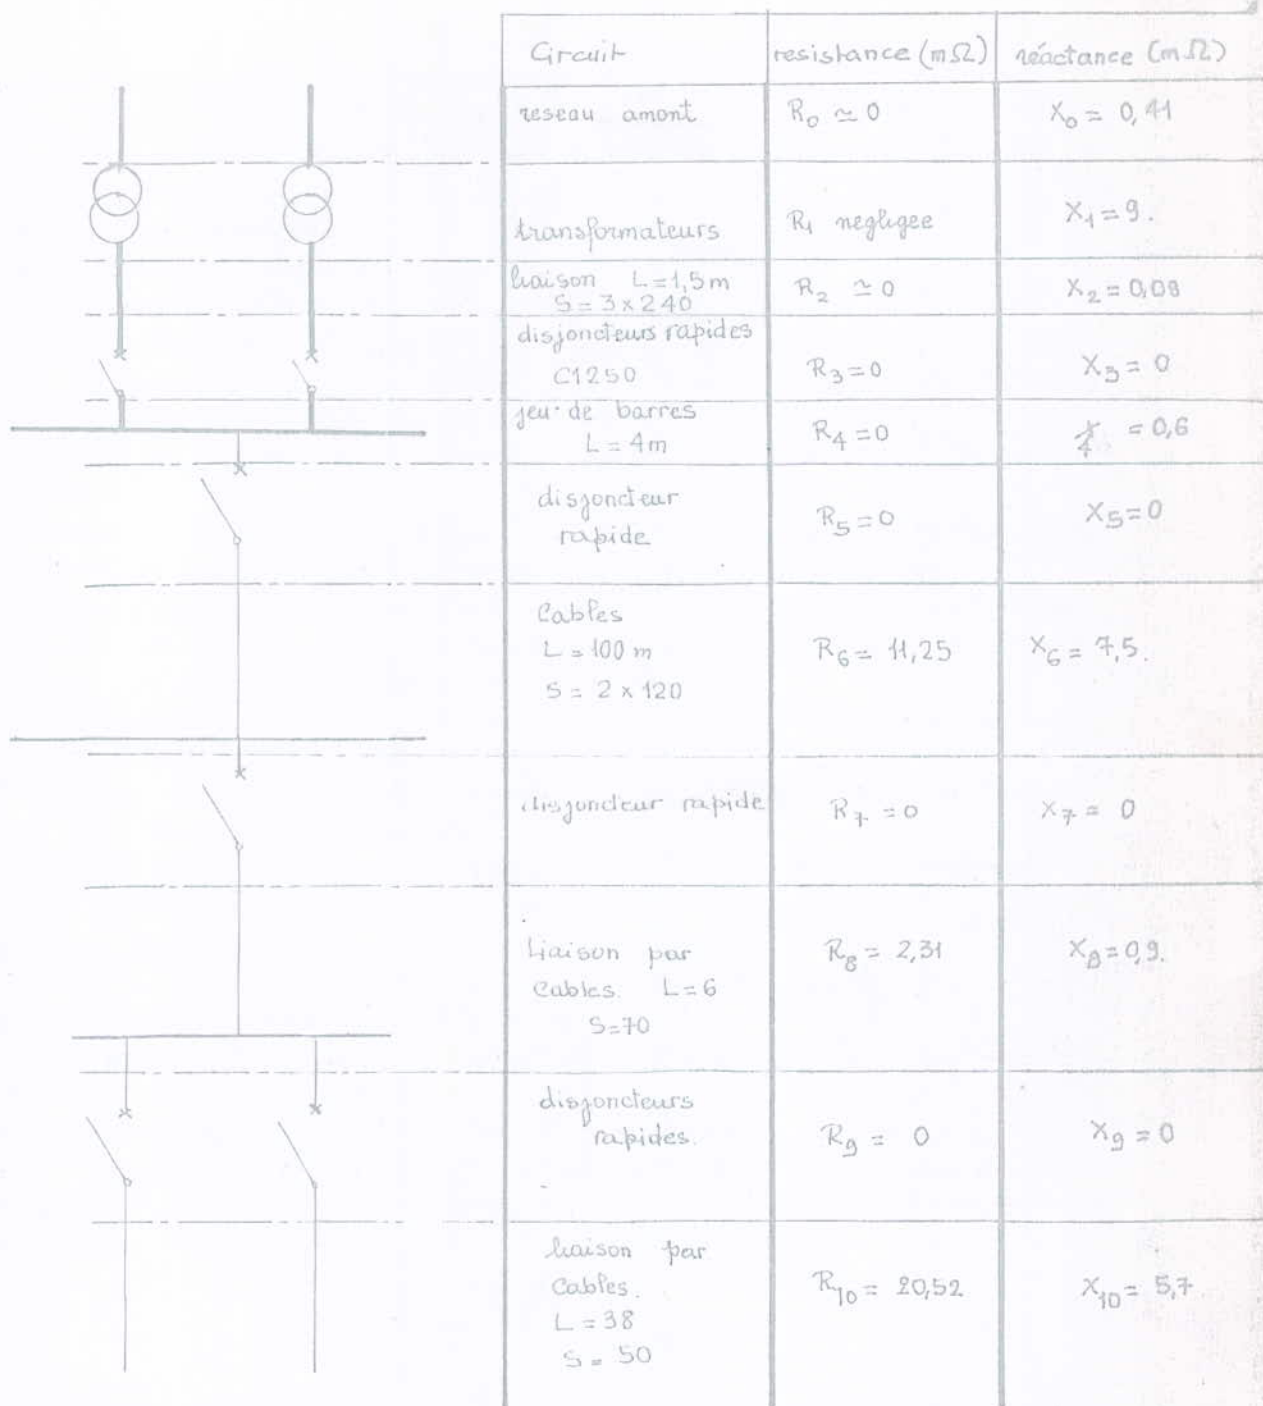 Circuit resistance (mΩ) réactance (mΩ)
reseau amont R₀ ≃ 0 X₀ = 0,41
transformateurs R₁ negligee X₁ = 9.
liaison L = 1,5 m
S = 3 x 240 R₂ ≃ 0 X₂ = 0,08
disjoncteurs rapides
C1250 R₃ = 0 X₃ = 0
jeu de barres
L = 4m R₄ = 0 X₄ = 0,6
disjoncteur
rapide R₅ = 0 X₅ = 0
Cables
L = 100 m R₆ = 11,25 X₆ = 7,5.
S = 2 x 120
disjoncteur rapide R₇ = 0 X₇ = 0
Liaison par R₈ = 2,31 X₈ = 0,9.
cables. L = 6
S = 70
disjoncteurs
rapides. R₉ = 0 X₉ = 0
liaison par
Cables. R₁₀ = 20,52 X₁₀ = 5,7
L = 38
S = 50